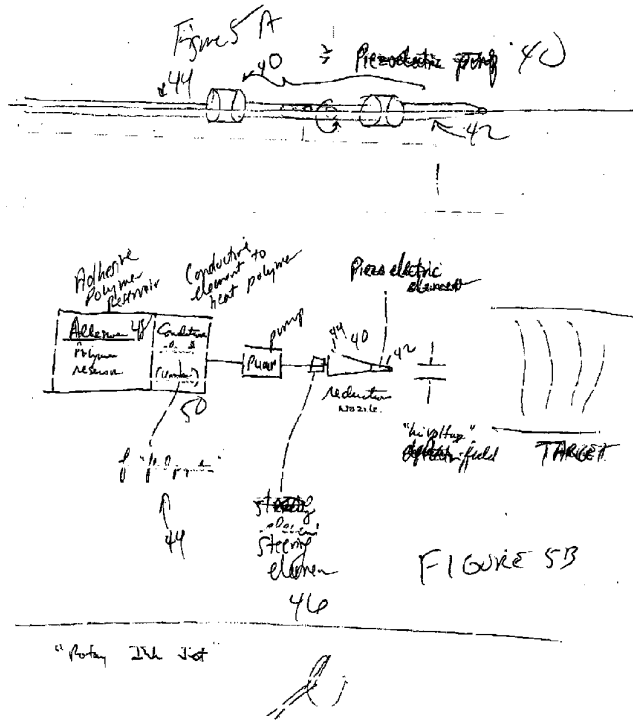 Figure 5 A
40 = Piezoelectric pump 40
44
42
Adhesive
Polymer
Reservoir
Conductive
element to
heat polymer
Piezo electric
element
Adhesive 48
Polymer
reservoir
50
pump
Pump
44 40 42
reduction
nozzle
"hi voltage"
field
TARGET
44
steering
element
46
FIGURE 5B
"Rotary Ink Jet"